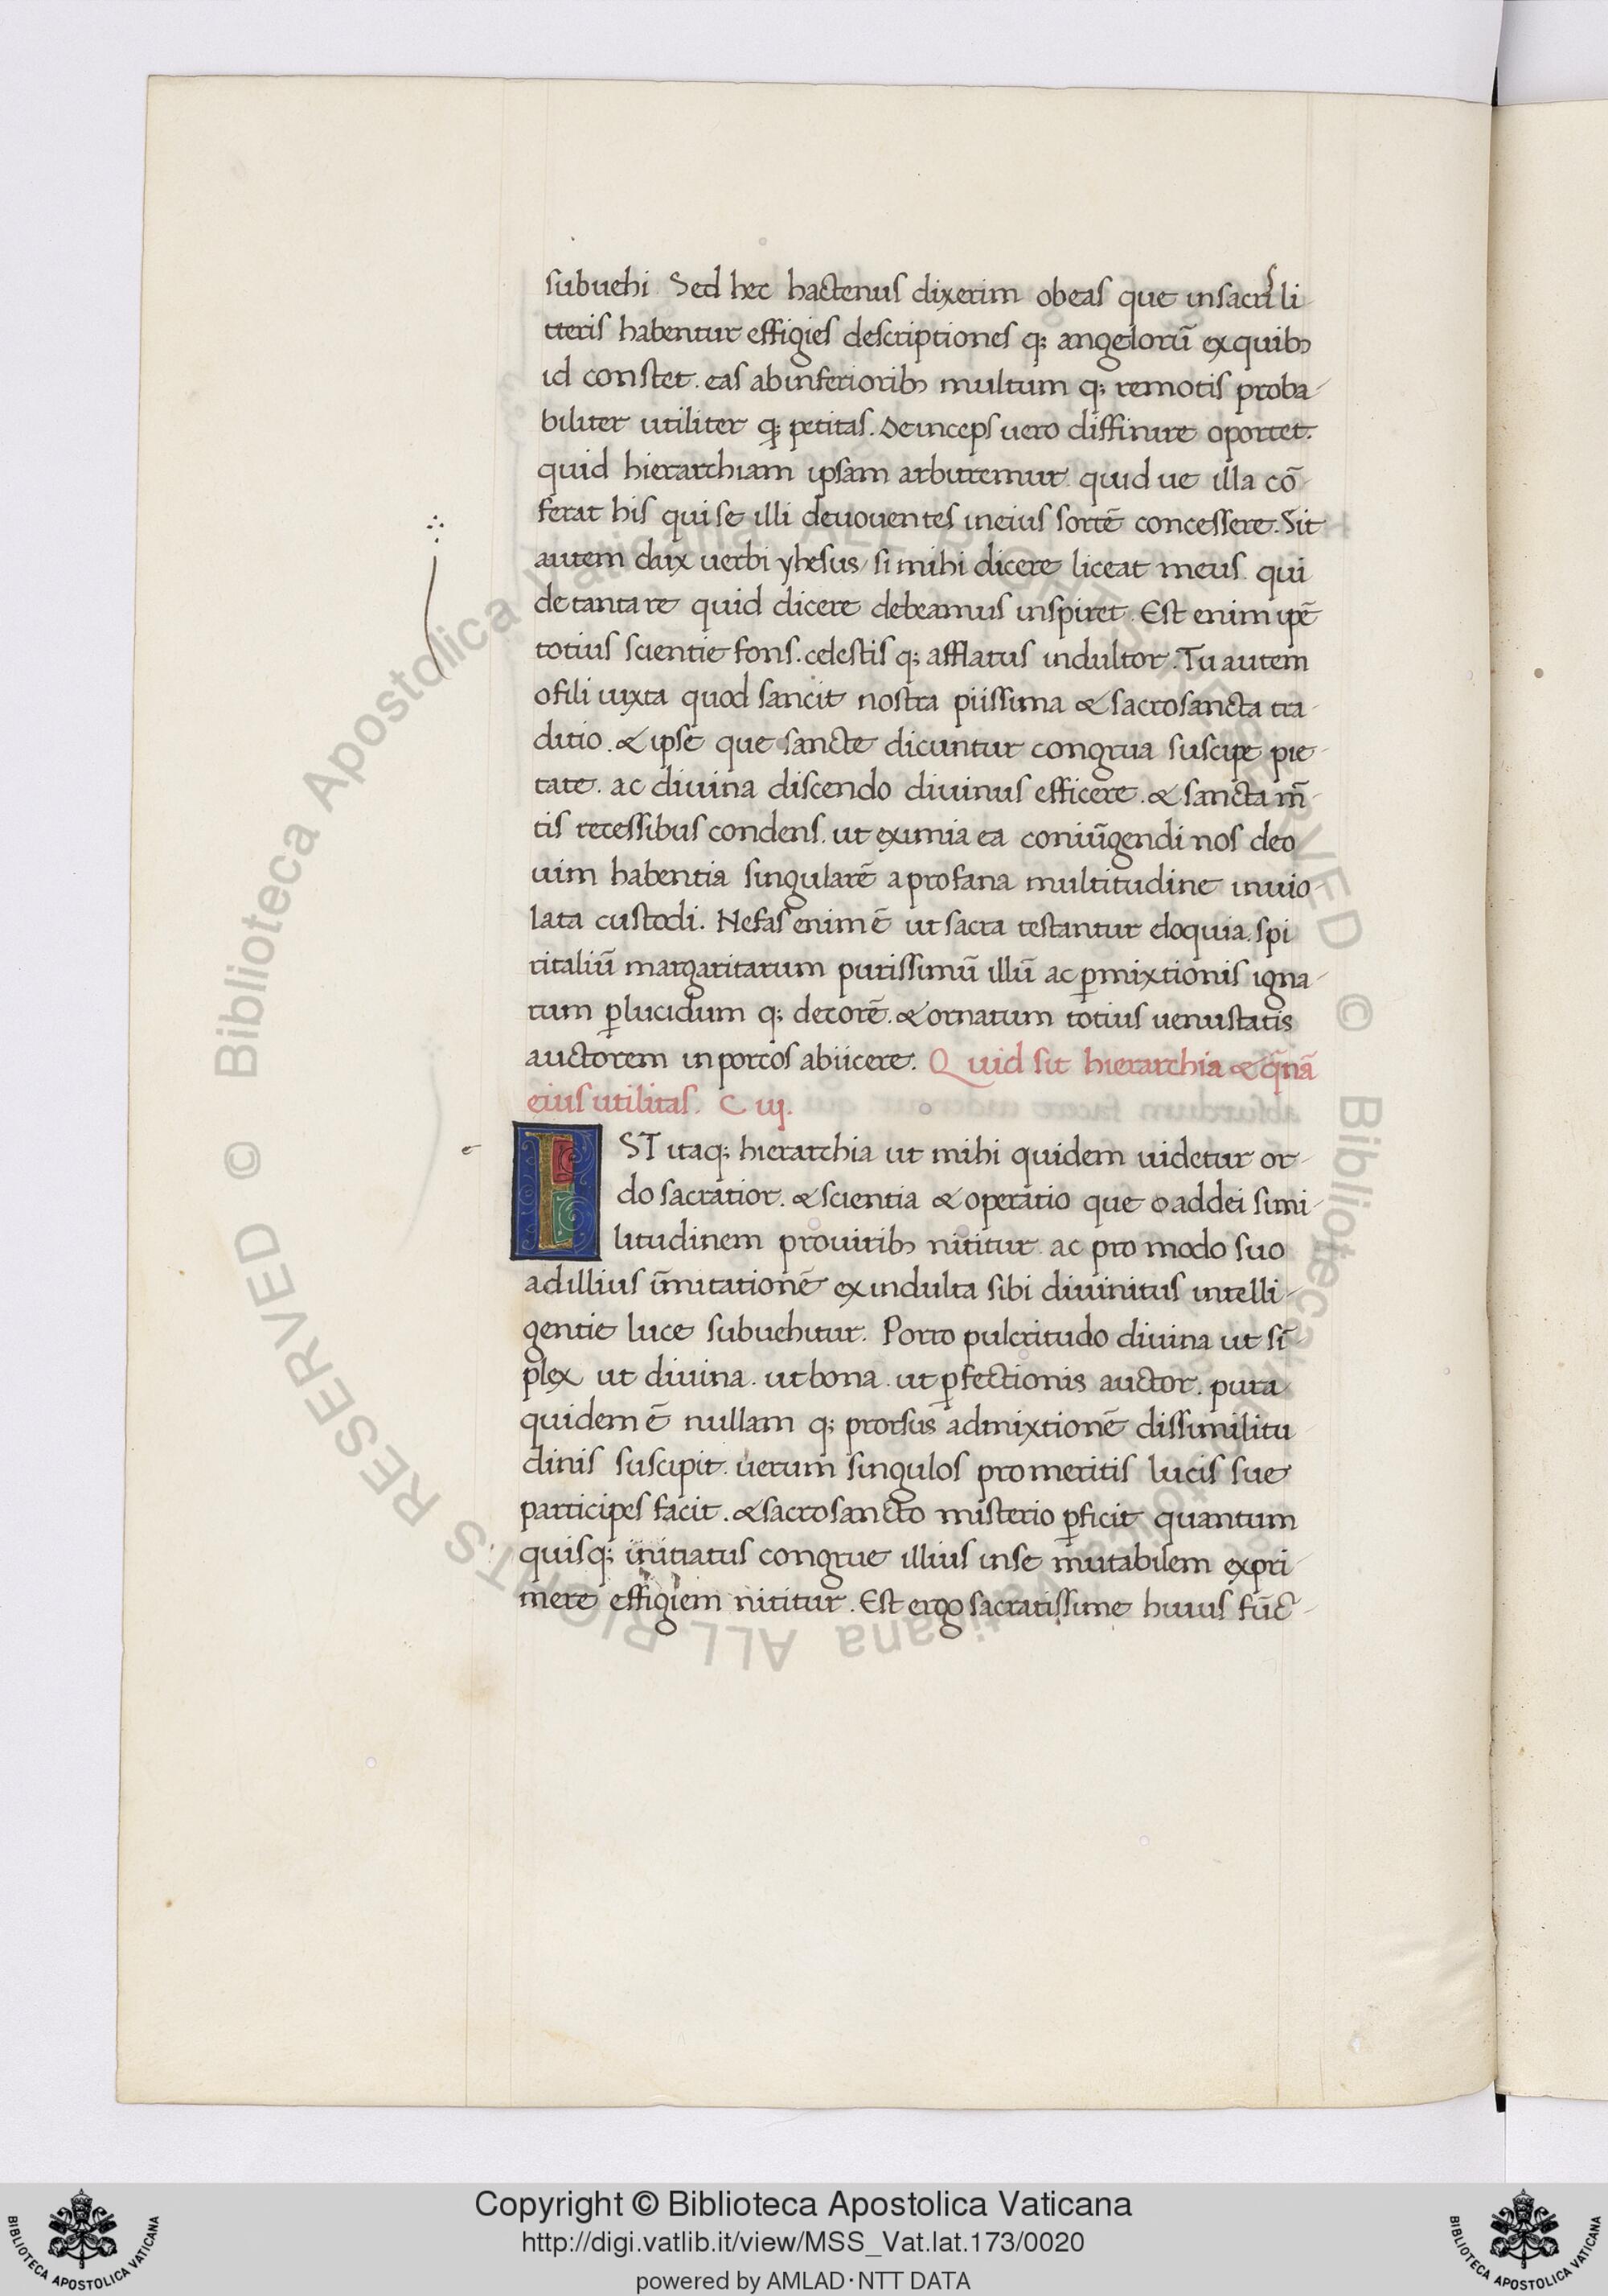 subuehi Sed hec hactenus dixerim obeas que insacris li
tteris habentur effigies descriptiones q; angeloru̅ exquibꝫ
id constet. eas abinferioribꝫ multum q; remotis proba-
biliter utiliter q; petitas. Deinceps uero diffinire oportet.
quid hierarchiam ipsam arbitremur. quid ue illa co̅
ferat his quise illi deuouentes ineius sorte̅ concessere. Sit
autem dux uerbi yhesus / si mihi dicere liceat meus. qui
detantare quid dicere debeamus inspiret. Est enim ipe̅
totius scientie fons. celestis q; afflatus indultor. Tu autem
ofili iuxta quod sancit nostra piissima & sacrosancta tra-
ditio. & ipse que sancte dicuntur congrua suscipe pie-
tate. ac diuina discendo diuinus efficere. & sancta m̅-
tis recessibus condens. ut eximia ea coniu̅gendi nos deo
uim habentia singulare̅ aprofana multitudine inuio-
lata custodi. Nefas enim e̅ ut sacra testantur eloquia. spi
ritaliu̅ margaritarum purissimu̅ illu̅ ac ꝑmixtionis igna-
rum ꝑlucidum q; decore̅. & ornatum totius uenustatis
auctorem inporcos abiicere. Quid sit hierarchia & q̅na̅
eius utilitas. C iij.
e
EST itaq; hierarchia ut mihi quidem uidetur or-
do sacratior. & scientia & operatio que addei simi-
litudinem prouiribꝫ nititur. ac pro modo suo
adillius i̅mitatione̅ exindulta sibi diuinitus intelli-
gentie luce subuehitur. Porro pulcritudo diuina ut si̅-
plex ut diuina. utbona. ut ꝑfectionis auctor. pura
quidem e̅ nullam q; prorsus admixtione̅ dissimilitu
dinis suscipit. uerum singulos promeritis lucis sue
participes facit. & sacrosancto misterio ꝑficit quantum
quisq; initiatus congrue illius inse mutabilem expri-
mere effigiem nititur. Est ergo sacratissime huius fu̅c-
Copyright © Biblioteca Apostolica Vaticana
http://digi.vatlib.it/view/MSS_Vat.lat.173/0020
powered by AMLAD·NTT DATA
BIBLIOTECA APOSTOLICA VATICANA
BIBLIOTECA APOSTOLICA VATICANA
© Biblioteca Apostolica Vaticana ALL RIGHTS RESERVED © Biblioteca Apostolica Vaticana ALL RIGHTS RESERVED